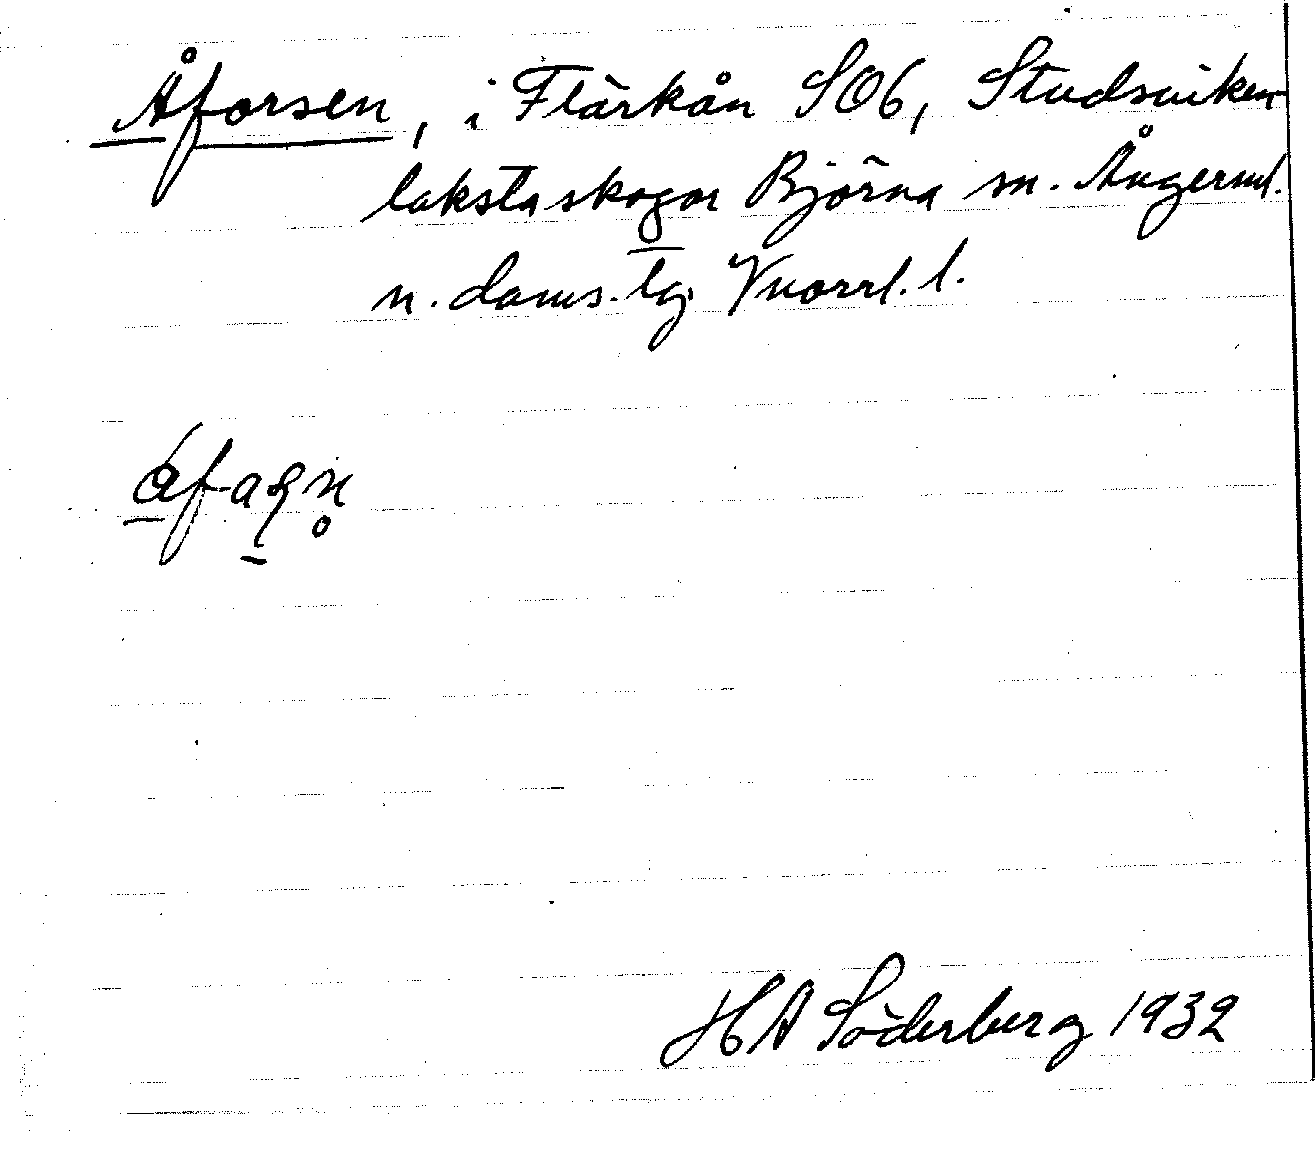 Åforsen, i Flärkån SO6, Studsviken
lakstaskogar Björna sn. Ångerml.
n. doms. tg. Vnorrl. l.
H A Söderberg 1932